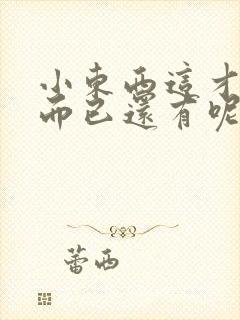 小東西這才
而已還有呢
蕾西